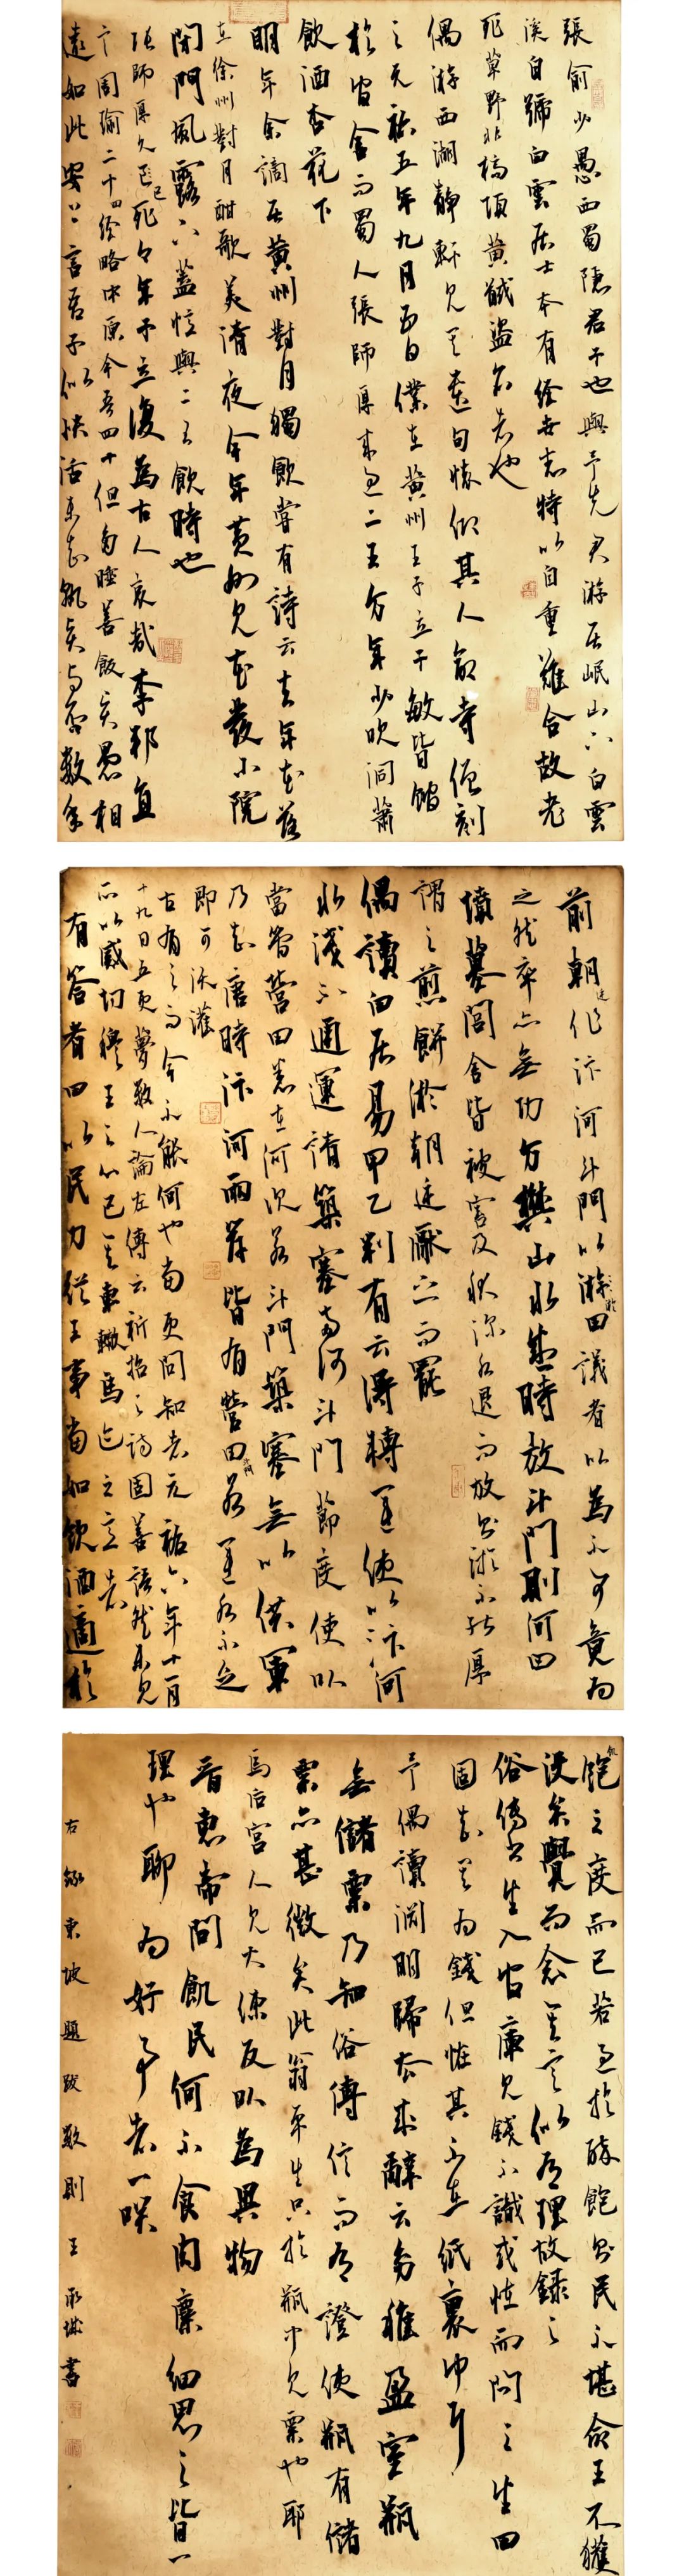 張俞少愚西蜀隱君子也與予先君游居岷山下白雲
溪自號白雲居士本有經世志特以自重難合故老
死草野非槁項黃馘盜名者也
偶游西湖靜軒見其遺句懷仰其人命寺僧刻
之元祐五年九月五日僕在黃州王子立子敏皆館
於官舍而蜀人張師厚來過二王方年少吹洞簫
飲酒杏花下
明年余謫居黃州對月獨飲嘗有詩云去年花落
在徐州對月酣歌美清夜今年黃州見花發小院
閉門風露下蓋憶與二王飲時也
張師厚久已死今年子立復為古人哀哉李邦直
言周瑜二十四經略中原今吾四十但多睡善飯賢愚相
遠如此安上言吾子似快活未知孰賢與否數年
前朝廷作汴河斗門以淤田議者以為不可竟為
之然卒亦無功方樊山水盛時放斗門則河田
墳墓閭舍皆被害及秋深水退而放則淤不能厚
謂之煎餅淤朝廷厭之而罷
偶讀白居易甲乙判有云得轉運使以汴河
水淺不通運請築塞兩河斗門節度使以
當管營田悉在河次若斗門築塞無以供軍
乃知唐時汴河兩岸皆有營田斗門若運水不乏
即可沃灌
古有之而今不能何也當更問知者元祐六年十一月
十九日五更夢數人論左傳云祈招之詩固善語然未見
所以感切穆王之心已其車轍馬迹之意者
有答者曰以民力從王事當如飲酒適於
飢飽之度而已若過於醉飽則民不堪命王不獲
沒矣覺而念其言似有理故錄之
俗傳書生入官庫見錢不識或怪而問之生曰
固知其為錢但怪其不在紙裹中耳
予偶讀淵明歸去來辭云幼稚盈室瓶
無儲粟乃知俗傳信而有證使瓶有儲
粟亦甚微矣此翁平生只於瓶中見粟也耶
馬后宮人見大練反以為異物
晉惠帝問飢民何不食肉糜細思之皆一
理也聊為好事者一笑
右錄東坡題跋數則 王承 書